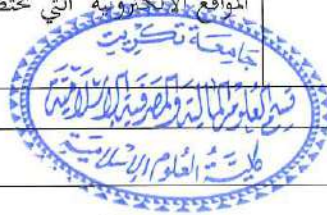 المواقع الالكترونية التي تختص
جامعة تكريت
قسم العلوم المالية والمصرفية الإسلامية
كلية العلوم الإسلامية